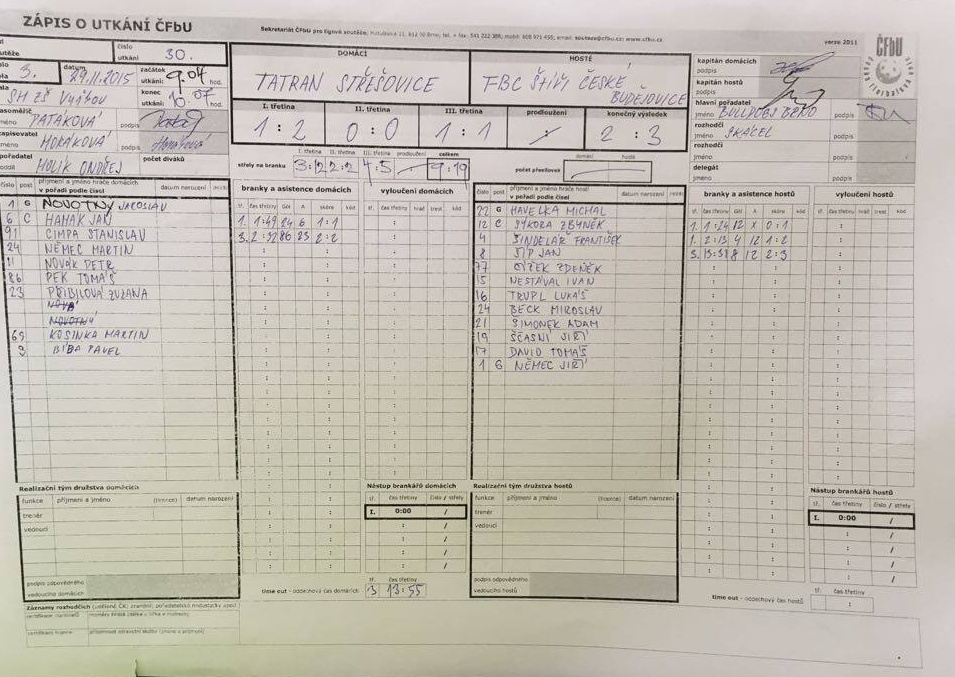 ZÁPIS O UTKÁNÍ ČFbU
verze 2011
ČFbU
číslo utkání 30.
datum 29.11.2015
začátek utkání: 9:04 hod.
konec utkání: 10:07 hod.
PATÁKOVÁ podpis
MORÁKOVÁ podpis
HOLÍK ONDŘEJ
počet diváků
DOMÁCÍ
TATRAN STŘEŠOVICE
HOSTÉ
FBC ŠTÍŘI ČESKÉ BUDĚJOVICE
I. třetina II. třetina III. třetina prodloužení konečný výsledek
1:2 0:0 1:1 / 2:3
I. třetina II. třetina III. třetina prodloužení celkem
střely na branku 3:12 2:2 4:5 – 9:19
počet přesilovek domácí hosté
kapitán domácích
podpis
kapitán hostů
podpis
hlavní pořadatel
jméno BULLDOGS BRNO podpis
rozhodčí
jméno SKÁCEL podpis
rozhodčí
jméno podpis
delegát
jméno podpis
číslo post příjmení a jméno hráče domácích v pořadí podle čísel datum narození
1 G NOVOTNÝ JAROSLAV
6 C HANÁK JAN
91 CIMPA STANISLAV
24 NĚMEC MARTIN
11 NOVÁK PETR
86 PEK TOMÁŠ
23 PŘIBILOVÁ ZUZANA
NOVÁ
NOVOTNÝ
69 KOSINKA MARTIN
9 BÍBA PAVEL
branky a asistence domácích
tř. čas třetiny Gól A skóre
1. 1:49 24 6 1:1
3. 2:32 86 23 2:2
vyloučení domácích
tř. čas třetiny hráč trest kód
číslo post příjmení a jméno hráče hostí v pořadí podle čísel datum narození
22 G HAVELKA MICHAL
12 C SÝKORA ZBYNĚK
4 ŠINDELÁŘ FRANTIŠEK
8 ŠÍP JAN
77 CÍŽEK ZDENĚK
15 NESTÁVAL IVAN
16 TRUPL LUKÁŠ
24 BECK MIROSLAV
21 ŠIMONEK ADAM
19 ŠČASNÍ JIŘÍ
17 DAVID TOMÁŠ
1 G NĚMEC JIŘÍ
branky a asistence hostů
tř. čas třetiny Gól A skóre
1. 1:24 12 X 0:1
1. 2:13 4 12 1:2
3. 13:31 8 12 2:3
vyloučení hostů
tř. čas třetiny hráč trest kód
Realizační tým družstva domácích
funkce příjmení a jméno (licence) datum narození
trenér
vedoucí
podpis odpovědného vedoucího domácích
Nástup brankářů domácích
tř. čas třetiny číslo / střely
I. 0:00 /
time out - oddechový čas domácích
tř. čas třetiny
3 13:55
Realizační tým družstva hostů
funkce příjmení a jméno (licence) datum narození
trenér
vedoucí
podpis odpovědného vedoucího hostů
Nástup brankářů hostů
tř. čas třetiny číslo / střely
I. 0:00 /
time out - oddechový čas hostů
tř. čas třetiny
Záznamy rozhodčích